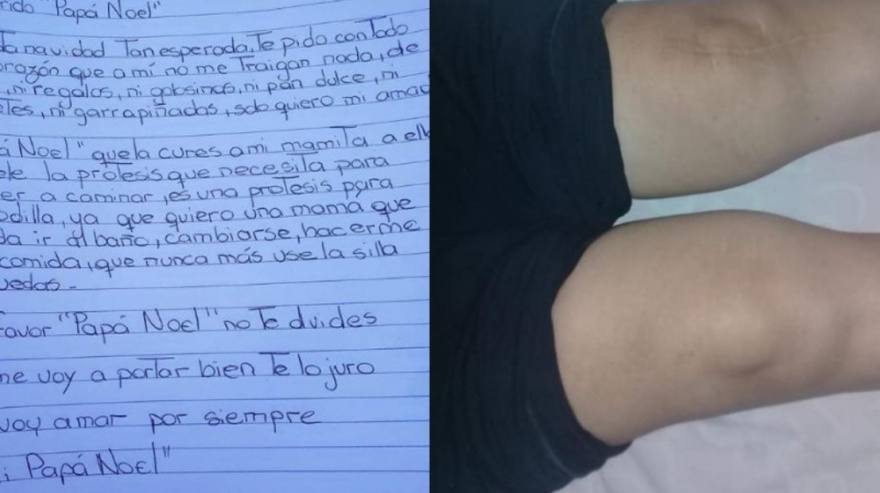 rido "Papá Noel"
ta navidad Tan esperada, Te pido con Todo
orazón que a mí no me Traigan nada, de
, ni regalos, ni golosinas, ni pan dulce, ni
tes, ni garrapiñadas, solo quiero mi amad
á Noel" que la cures a mi mamita a ell
le la prótesis que necesita para
er a caminar, es una prótesis para
odilla, ya que quiero una mamá que
da ir al baño, cambiarse, hacerme
comida, que nunca más use la silla
uedas -
favor "Papá Noel" no Te olvides
me voy a portar bien Te lo juro
voy amar por siempre
i Papá Noel"